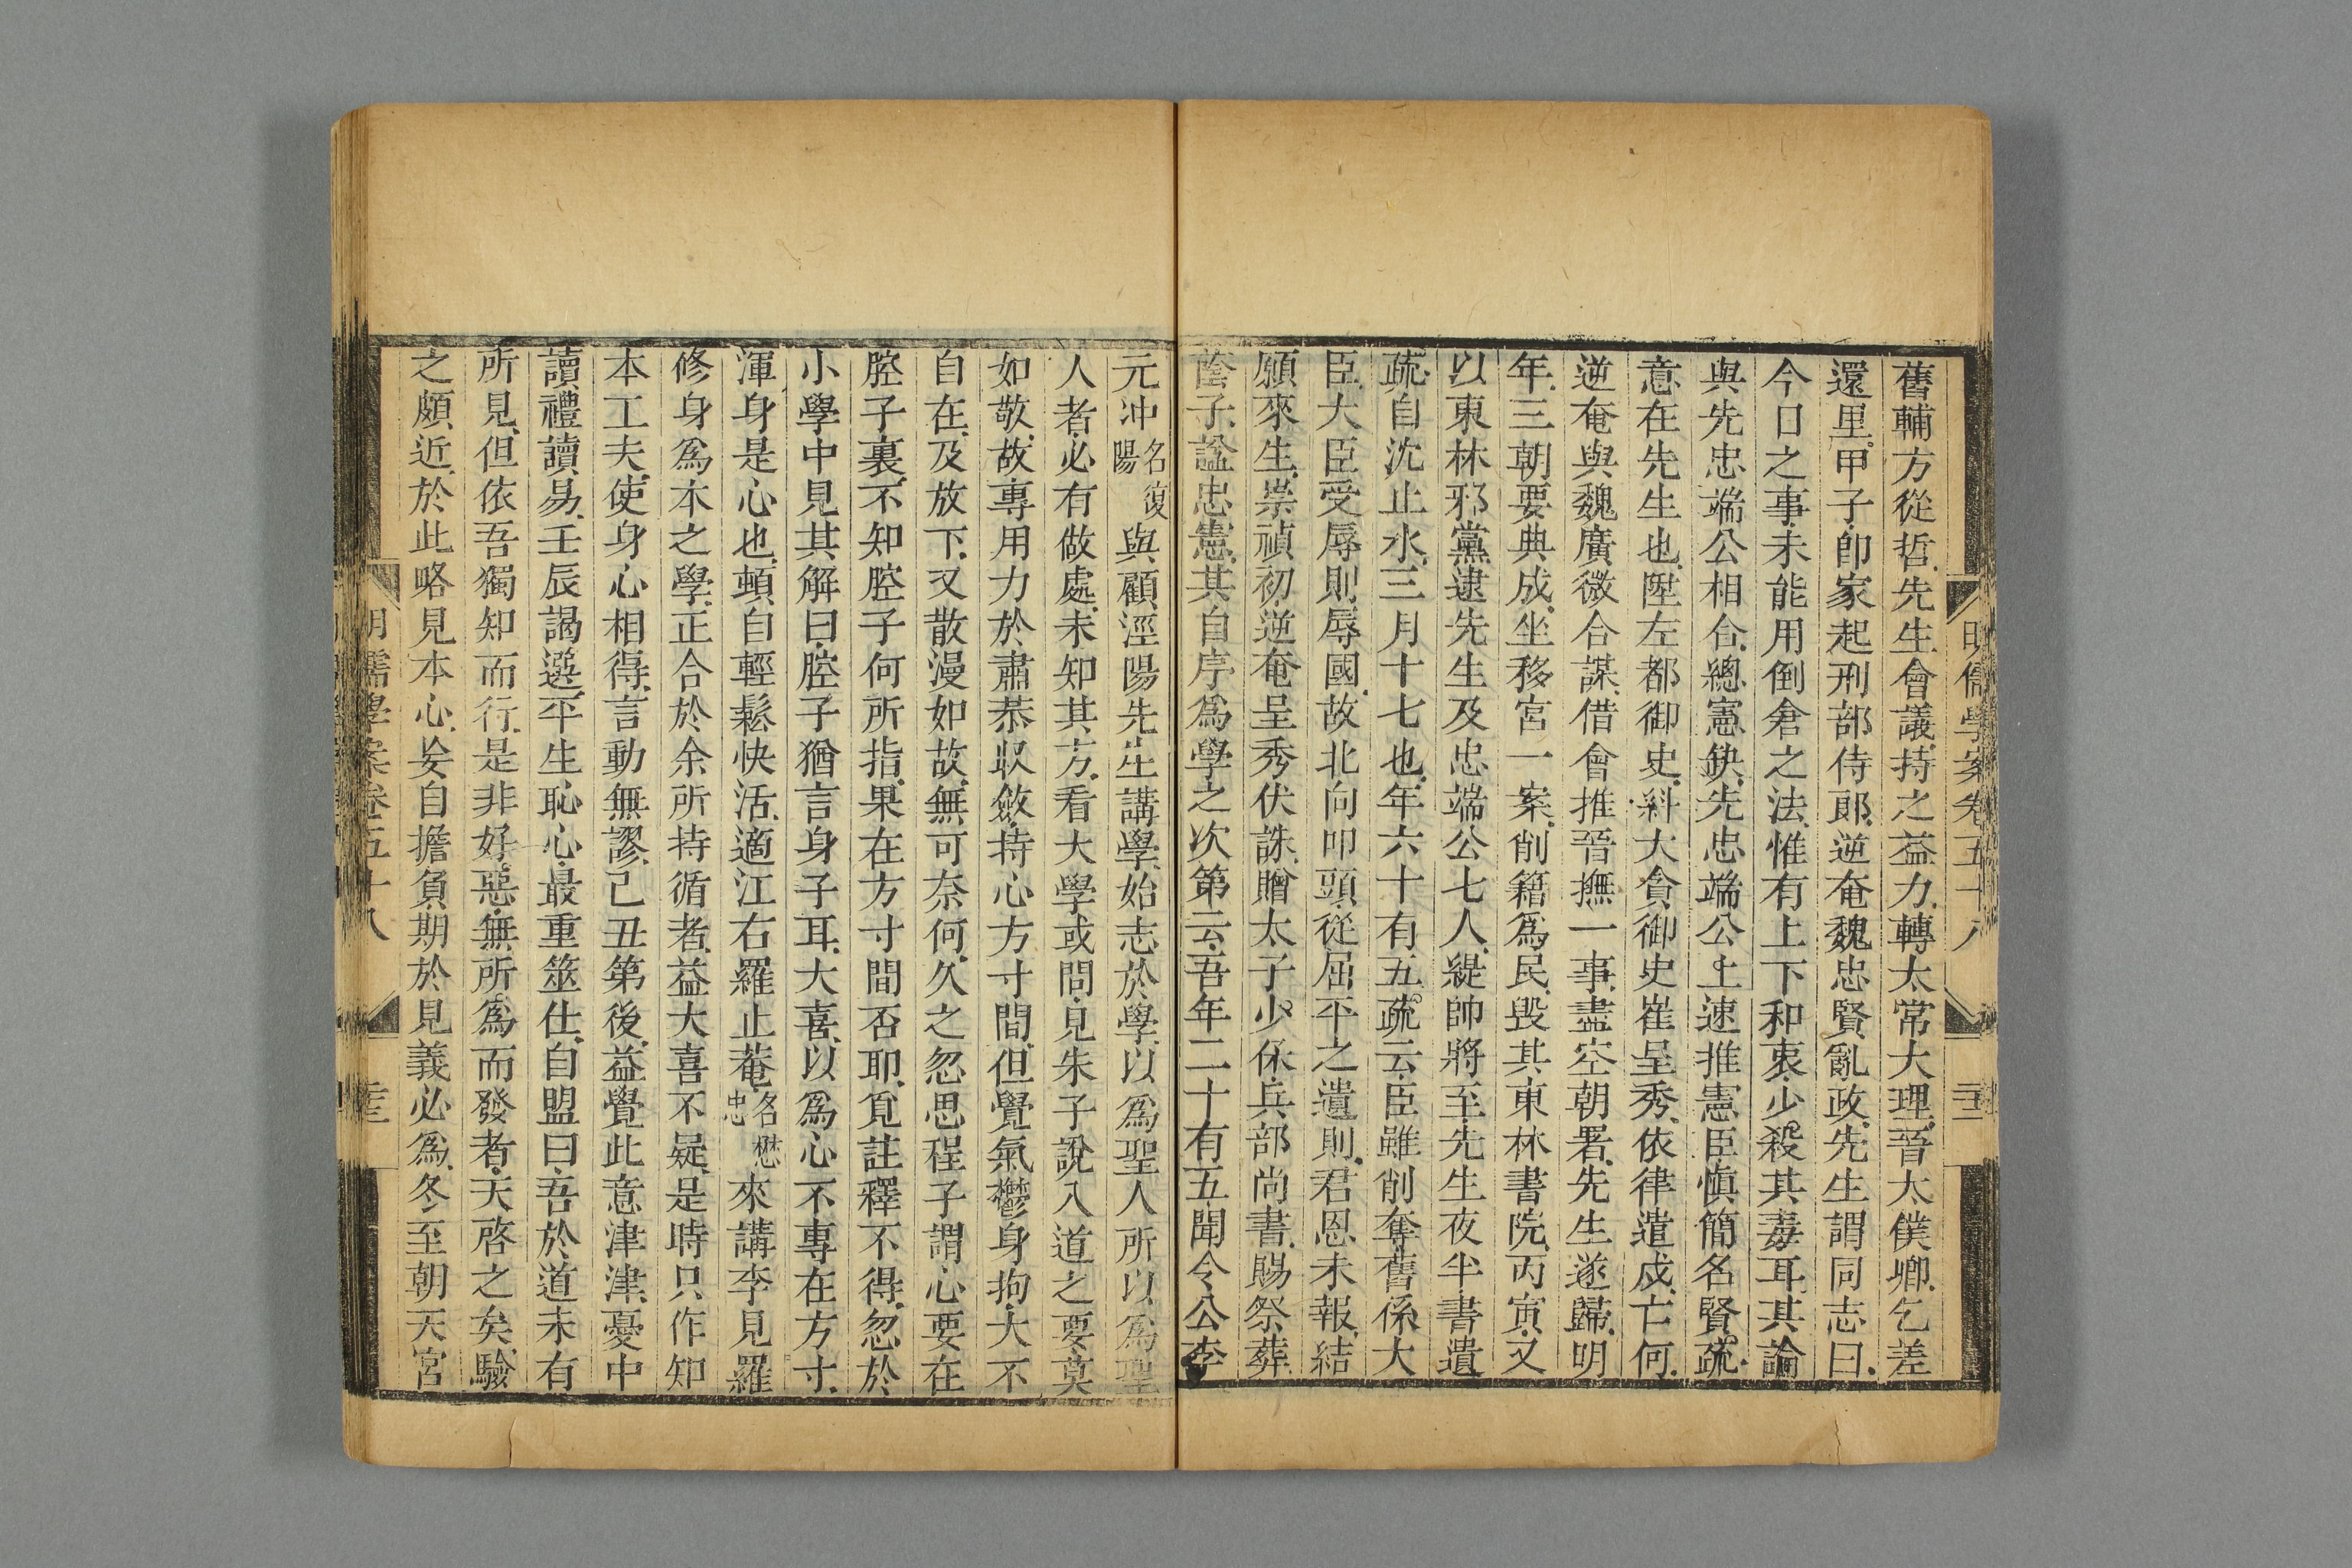 明儒學案卷五十八
舊輔方從哲先生會議持之益力轉太常大理晉太僕卿乞差
還里甲子卽家起刑部侍郎逆奄魏忠賢亂政先生謂同志曰
今日之事未能用倒倉之法惟有上下和衷少殺其毒耳其論
與先忠端公相合總憲缺先忠端公上速推憲臣愼簡名賢疏
意在先生也陞左都御史糾大貪御史崔呈秀依律遣戍亡何
逆奄與魏廣微合謀借會推晉撫一事盡空朝署先生遂歸明
年三朝要典成坐移宮一案削籍爲民毀其東林書院丙寅又
以東林邪黨逮先生及忠端公七人緹帥將至先生夜半書遺
疏自沈止水三月十七也年六十有五疏云臣雖削奪舊係大
臣大臣受辱則辱國故北向叩頭從屈平之遺則君恩未報結
願來生崇禎初逆奄呈秀伏誅贈太子少保兵部尚書賜祭葬
蔭子諡忠憲其自序爲學之次第云吾年二十有五聞令公李
元冲名復陽與顧涇陽先生講學始志於學以爲聖人所以爲聖
人者必有做處未知其方看大學或問見朱子說入道之要莫
如敬故專用力於肅恭收斂持心方寸間但覺氣鬱身拘大不
自在及放下又散漫如故無可奈何久之忽思程子謂心要在
腔子裏不知腔子何所指果在方寸間否耶覓註釋不得忽於
小學中見其解曰腔子猶言身子耳大喜以爲心不專在方寸
渾身是心也頓自輕鬆快活適江右羅止菴名懋忠來講李見羅
修身爲本之學正合於余所持循者益大喜不疑是時只作知
本工夫使身心相得言動無謬己丑第後益覺此意津津憂中
讀禮讀易壬辰謁選平生恥心最重筮仕自盟曰吾於道未有
所見但依吾獨知而行是非好惡無所爲而發者天啓之矣驗
之頗近於此略見本心妄自擔負期於見義必爲冬至朝天宮
明儒學案卷五十八